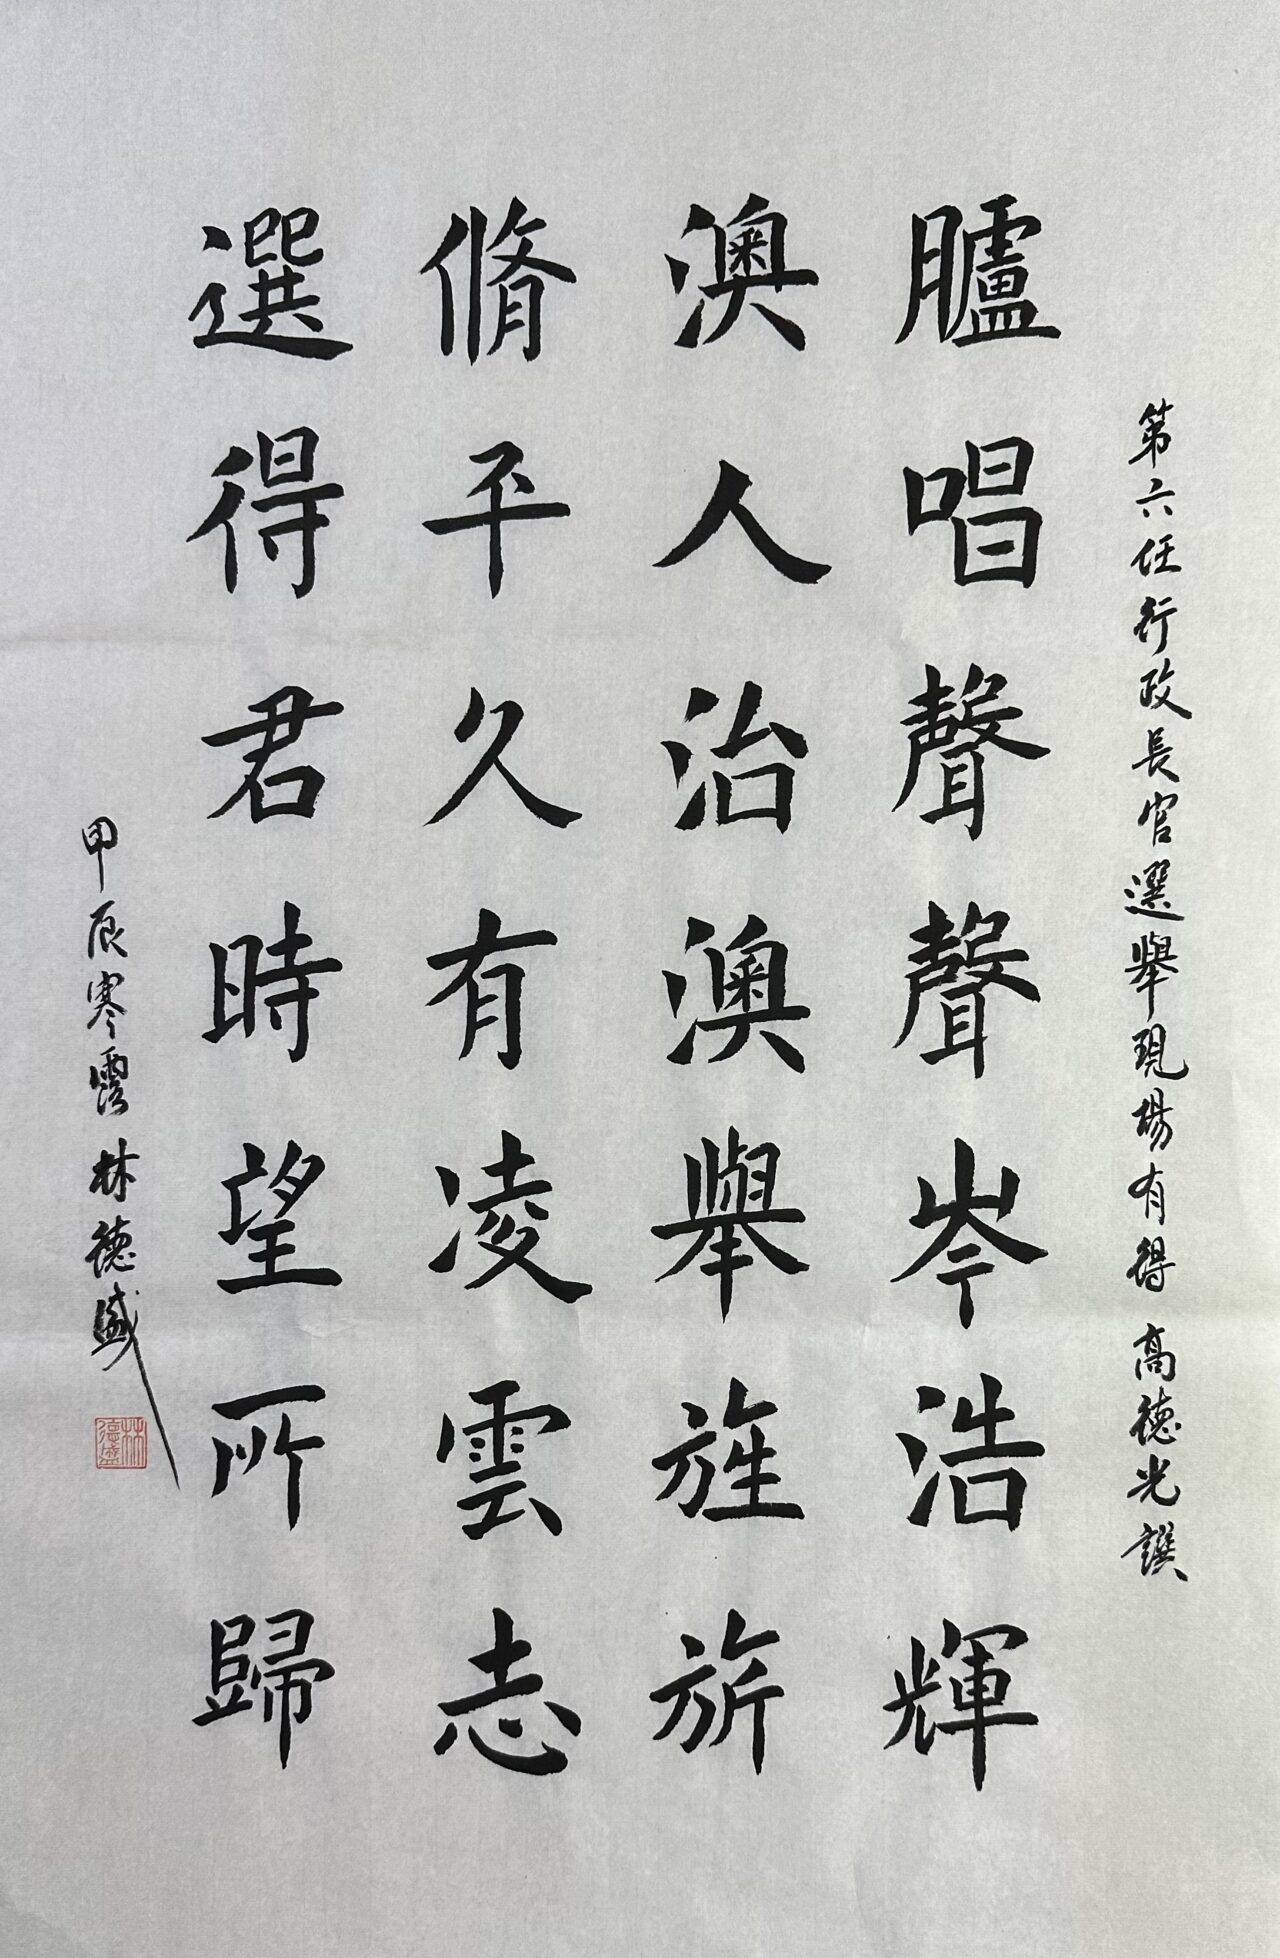 第六任行政長官選舉現場有得 高德光撰
臚唱聲聲岑浩輝
澳人治澳舉旌旂
脩平久有凌雲志
選得君時望所歸
甲辰寒露林德盛
林德盛